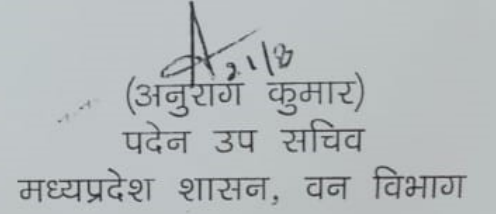 21/8
(अनुराग कुमार)
पदेन उप सचिव
मध्यप्रदेश शासन, वन विभाग